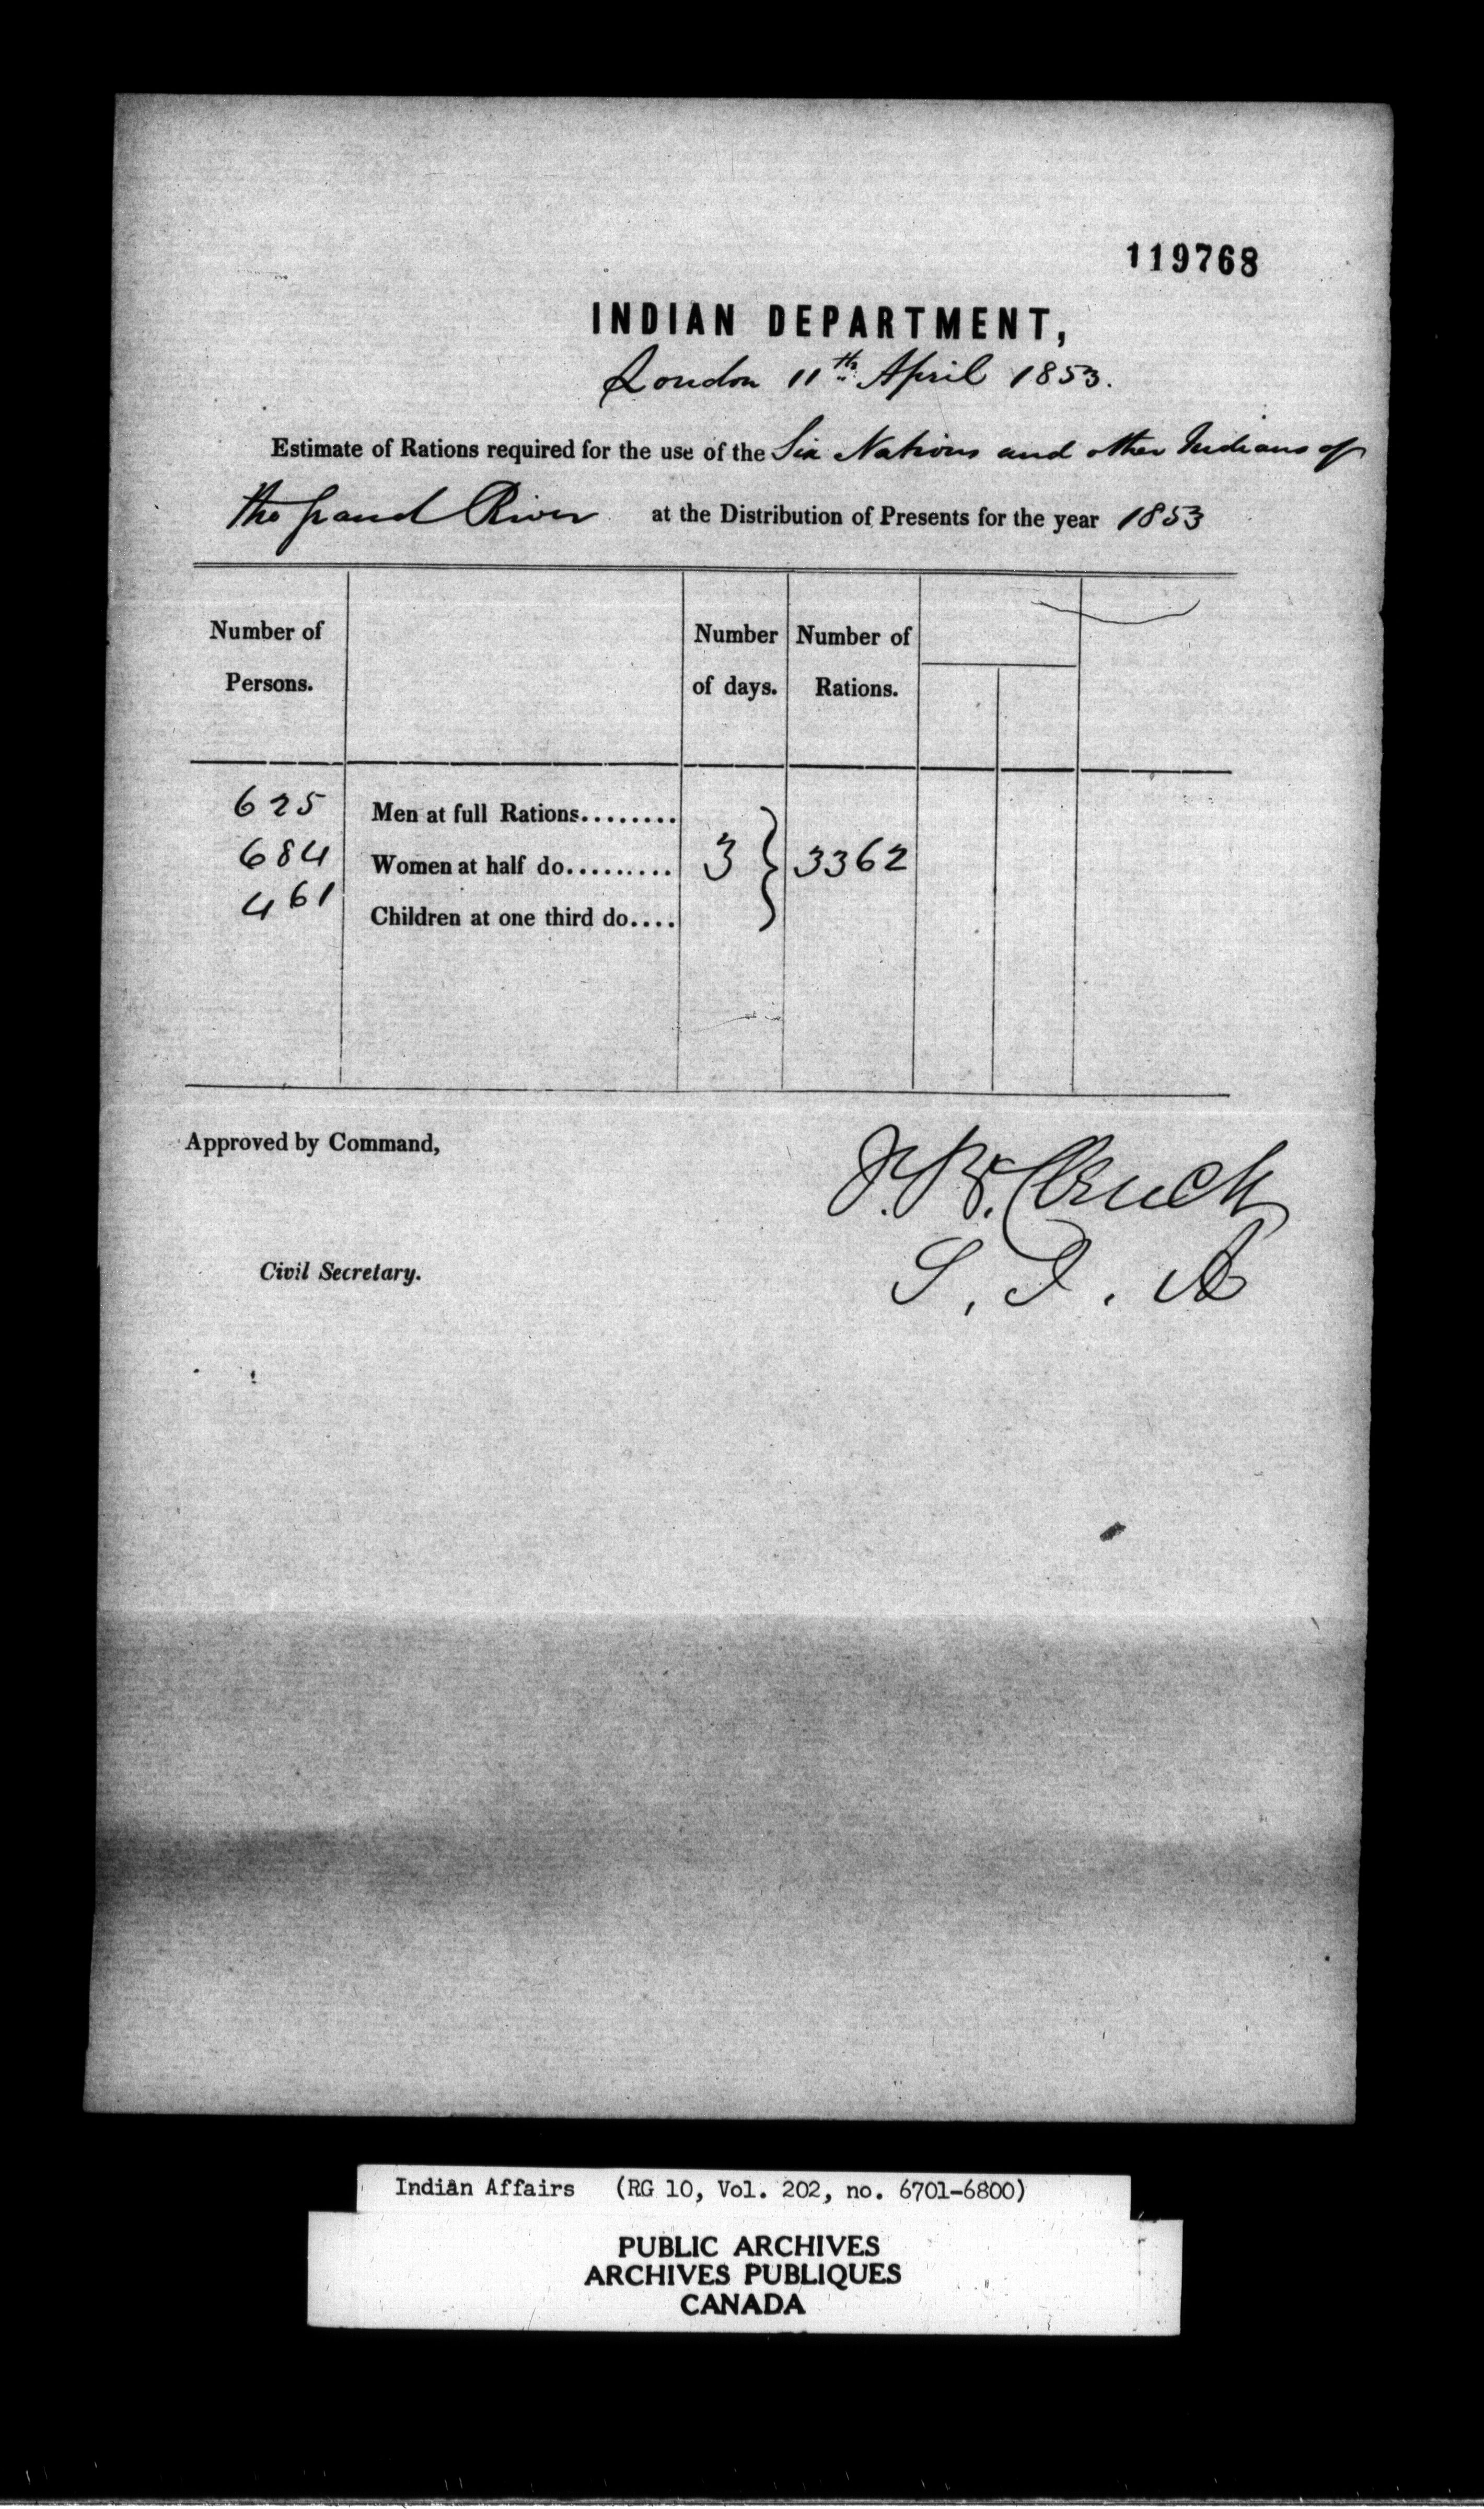 119768
INDIAN DEPARTMENT,
London 11th April 1853.
Estimate of Rations required for the use of the Six Nations and other Indians of
the Grand River at the Distribution of Presents for the year 1853
Number of Persons. Number of days. Number of Rations.
625 Men at full Rations........
684 Women at half do......... 3 } 3362
461 Children at one third do....
Approved by Command,
S. I. A
Civil Secretary.
Indian Affairs (RG 10, Vol. 202, no. 6701-6800)
PUBLIC ARCHIVES
ARCHIVES PUBLIQUES
CANADA